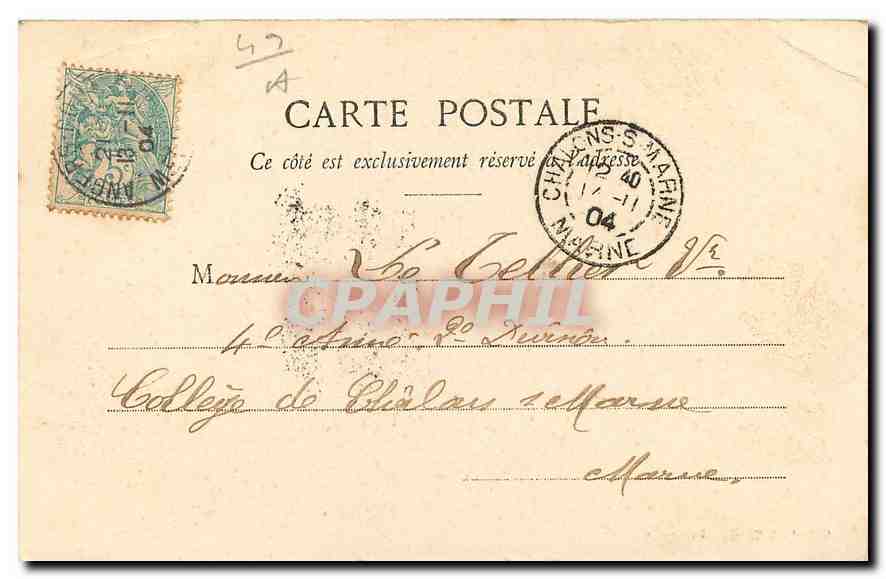 49
A
CARTE POSTALE
Ce côté est exclusivement réservé à l'adresse
CHALONS-S-MARNE
12 40
14 -11
04
MARNE
ANGERS
21
13 -11
04
Monsieur Le Tellier Vr.
CPAPHIL
4e 2e Division.
Collège de Châlons s Marne
Marne.